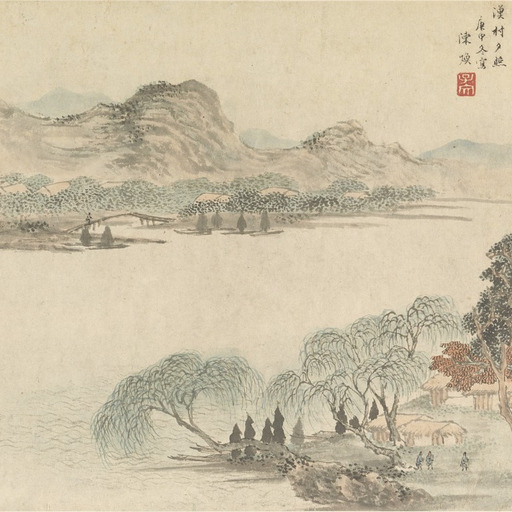 漁村夕照
庚申冬寫
陳煥
子文